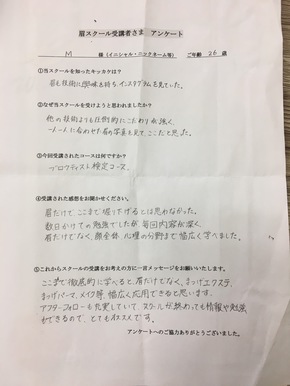 眉スクール受講者さま　アンケート
M　様（イニシャル・ニックネーム等）　ご年齢 26 歳
①当スクールを知ったキッカケは？
眉毛技術に興味を持ち、インスタグラムを見ていた。
②なぜ当スクールを受けようと思われましたか？
他の技術よりも圧倒的にこだわりが強く、
一人一人に合わせた眉の写真を見て、ここだと思った。
③今回受講されたコースは何ですか？
ブロウティスト検定コース
④受講された感想をお聞かせください。
眉だけで、ここまで掘り下げるとは思わなかった。
数日かけての勉強でしたが、毎回内容が深く、
眉だけでなく、顔全体、心理の分野まで幅広く学べました。
⑤これからスクールの受講をお考えの方に一言メッセージをお願いいたします。
ここまで徹底的に学べると、眉だけでなく、まつげエクステ、
まつげパーマ、メイク等、幅広く応用できると思います。
アフターフォローも充実していて、スクールが終わっても情報や勉強
もできるので、とてもオススメです。
アンケートへのご協力ありがとうございました。